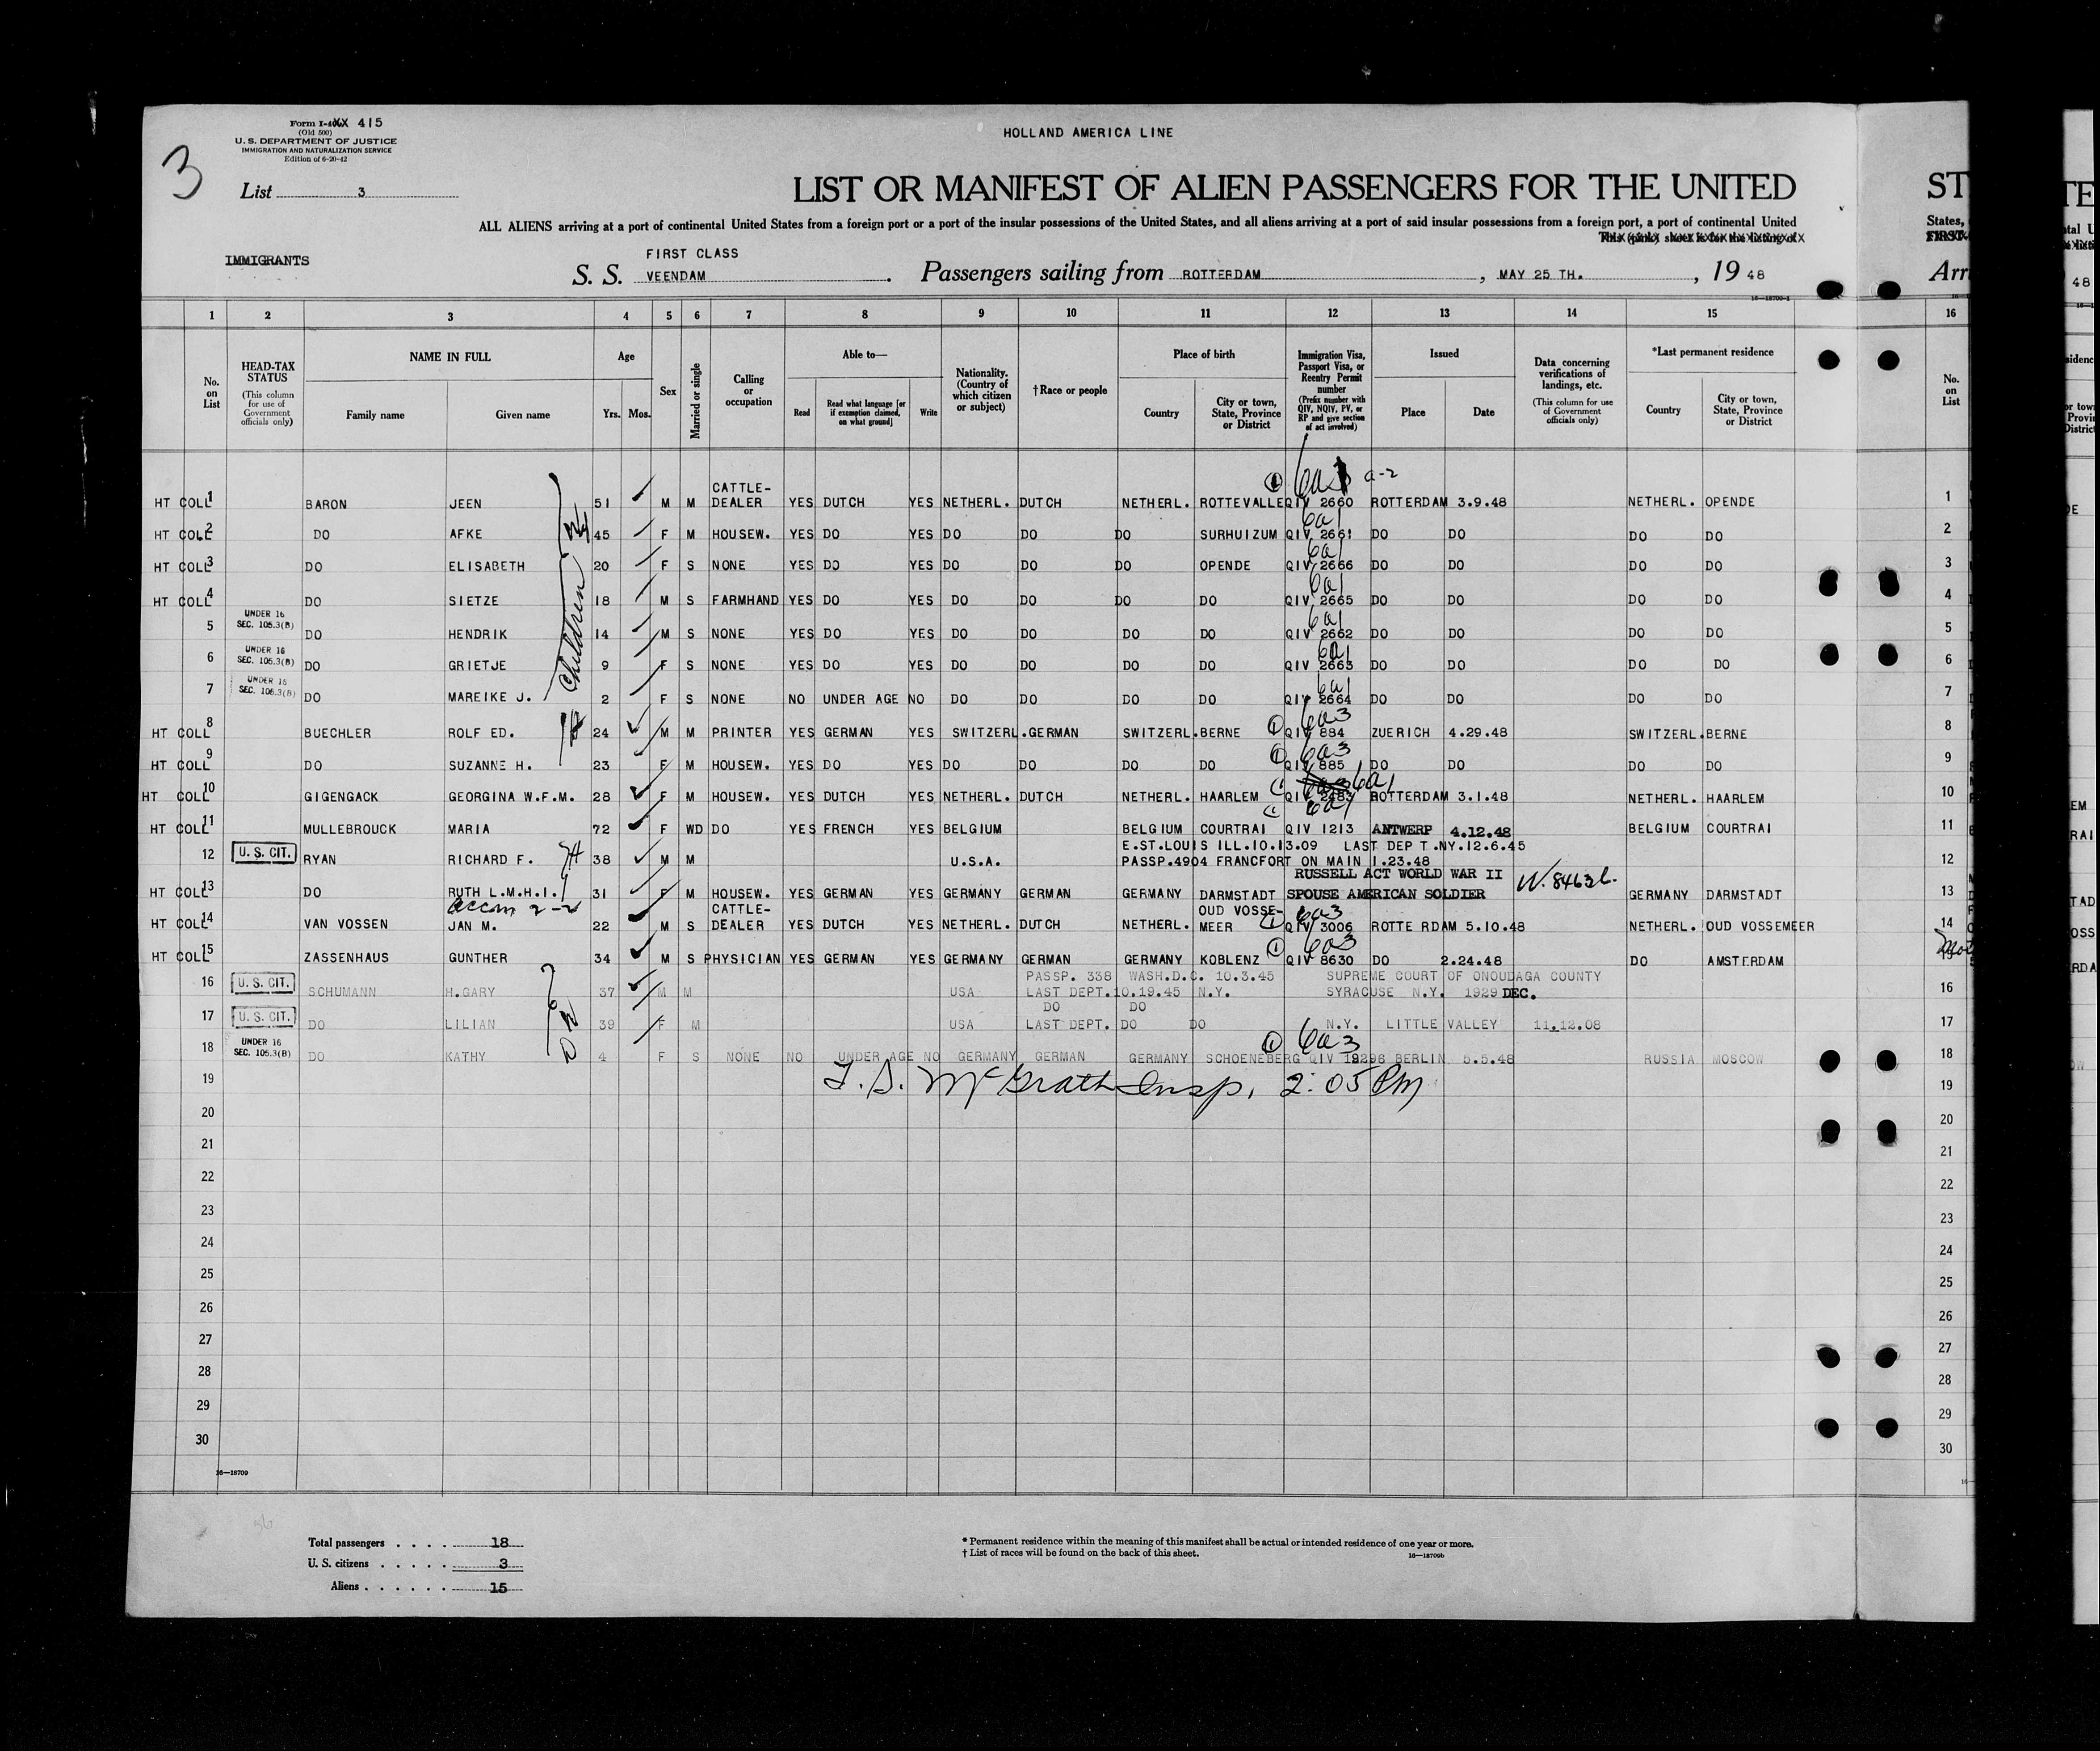 Form I-4 XX 415
(Old 500)
U. S. DEPARTMENT OF JUSTICE
IMMIGRATION AND NATURALIZATION SERVICE
Edition of 6-20-42
HOLLAND AMERICA LINE
3
List 3
LIST OR MANIFEST OF ALIEN PASSENGERS FOR THE UNITED ST
ALL ALIENS arriving at a port of continental United States from a foreign port or a port of the insular possessions of the United States, and all aliens arriving at a port of said insular possessions from a foreign port, a port of continental United States,
This (pink) sheet is for the listing of
IMMIGRANTS
FIRST CLASS
S. S. VEENDAM. Passengers sailing from ROTTERDAM, MAY 25 TH., 19 48 Arr
16—18700-1
1 2 3 4 5 6 7 8 9 10 11 12 13 14 15 16
No. on List
HEAD-TAX STATUS (This column for use of Government officials only)
NAME IN FULL Family name Given name
Age Yrs. Mos.
Sex
Married or single
Calling or occupation
Able to— Read Read what language [or if exemption claimed, on what ground] Write
Nationality. (Country of which citizen or subject)
†Race or people
Place of birth Country City or town, State, Province or District
Immigration Visa, Passport Visa, or Reentry Permit number (Prefix number with QIV, NQIV, PV, or RP and give section of act involved)
Issued Place Date
Data concerning verifications of landings, etc. (This column for use of Government officials only)
*Last permanent residence Country City or town, State, Province or District
No. on List
6a3 a-2
HT COLL 1 BARON JEEN 51 M M CATTLE-DEALER YES DUTCH YES NETHERL. DUTCH NETHERL. ROTTEVALLE QIV 2660 ROTTERDAM 3.9.48 NETHERL. OPENDE 1
6a1
HT COLL 2 DO AFKE 45 F M HOUSEW. YES DO YES DO DO DO SURHUIZUM QIV 2661 DO DO DO DO 2
6a1
HT COLL 3 DO ELISABETH 20 F S NONE YES DO YES DO DO DO OPENDE QIV 2666 DO DO DO DO 3
6a1
HT COLL 4 DO SIETZE 18 M S FARMHAND YES DO YES DO DO DO DO QIV 2665 DO DO DO DO 4
Children
6a1
5 UNDER 16 SEC. 105.3(B) DO HENDRIK 14 M S NONE YES DO YES DO DO DO DO QIV 2662 DO DO DO DO 5
6a1
6 UNDER 16 SEC. 105.3(B) DO GRIETJE 9 F S NONE YES DO YES DO DO DO DO QIV 2663 DO DO DO DO 6
6a1
7 UNDER 16 SEC. 105.3(B) DO MAREIKE J. 2 F S NONE NO UNDER AGE NO DO DO DO DO QIV 2664 DO DO DO DO 7
6a3
HT COLL 8 BUECHLER ROLF ED. 24 M M PRINTER YES GERMAN YES SWITZERL. GERMAN SWITZERL. BERNE QIV 884 ZUERICH 4.29.48 SWITZERL. BERNE 8
6a3
HT COLL 9 DO SUZANNE H. 23 F M HOUSEW. YES DO YES DO DO DO DO QIV 885 DO DO DO DO 9
6a1
HT COLL 10 GIGENGACK GEORGINA W.F.M. 28 F M HOUSEW. YES DUTCH YES NETHERL. DUTCH NETHERL. HAARLEM QIV ROTTERDAM 3.1.48 NETHERL. HAARLEM 10
6a1
HT COLL 11 MULLEBROUCK MARIA 72 F WD DO YES FRENCH YES BELGIUM BELGIUM COURTRAI QIV 1213 ANTWERP 4.12.48 BELGIUM COURTRAI 11
E.ST.LOUIS ILL.10.13.09 LAST DEP T.NY.12.6.45
12 U. S. CIT. RYAN RICHARD F. 38 M M U.S.A. PASSP.4904 FRANCFORT ON MAIN 1.23.48 12
RUSSELL ACT WORLD WAR II
HT COLL 13 DO RUTH L.M.H.I. 31 F M HOUSEW. YES GERMAN YES GERMANY GERMAN GERMANY DARMSTADT SPOUSE AMERICAN SOLDIER GERMANY DARMSTADT 13
accom 2-2
6a3
HT COLL 14 VAN VOSSEN JAN M. 22 M S CATTLE-DEALER YES DUTCH YES NETHERL. DUTCH NETHERL. OUD VOSSE-MEER QIV 3006 ROTTE RDAM 5.10.48 NETHERL. OUD VOSSEMEER 14
6a3
HT COLL 15 ZASSENHAUS GUNTHER 34 M S PHYSICIAN YES GERMAN YES GERMANY GERMAN GERMANY KOBLENZ QIV 8630 DO 2.24.48 DO AMSTERDAM
PASSP. 338 WASH.D.C. 10.3.45 SUPREME COURT OF ONOUDAGA COUNTY
16 U. S. CIT. SCHUMANN H.GARY 37 M M USA LAST DEPT.10.19.45 N.Y. SYRACUSE N.Y. 1929 DEC. 16
DO DO
17 U. S. CIT. DO LILIAN 39 F M USA LAST DEPT. DO DO N.Y. LITTLE VALLEY 11.12.08 17
6a3
18 UNDER 16 SEC. 105.3(B) DO KATHY 4 F S NONE NO UNDER AGE NO GERMANY GERMAN GERMANY SCHOENEBERG QIV 19296 BERLIN 5.5.48 RUSSIA MOSCOW 18
19 McGrath Insp. 2:05 PM 19
20 20
21 21
22 22
23 23
24 24
25 25
26 26
27 27
28 28
29 29
30 30
16—18700
Total passengers 18
U. S. citizens 3
Aliens 15
* Permanent residence within the meaning of this manifest shall be actual or intended residence of one year or more.
† List of races will be found on the back of this sheet.
16—18700b